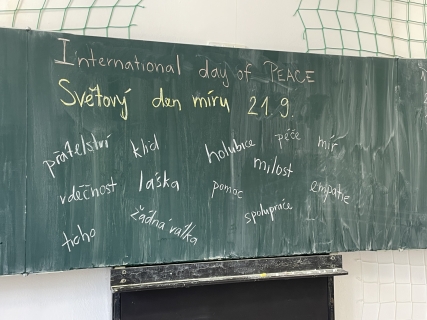 International day of PEACE
Světový den míru 21.9.
přátelství klid holubice péče mír
milost
vděčnost láska pomoc empatie
ticho žádná válka spolupráce